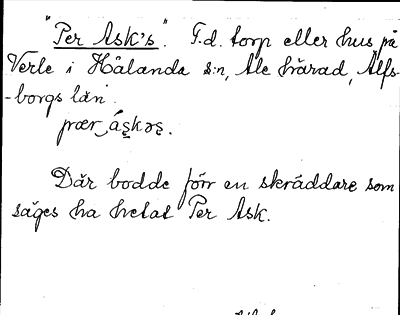 "Per Ask's". F.d. torp eller hus på
Verle i Hålanda s:n, Ale härad, Älfs-
-borgs län.
pær áskəs.
Där bodde förr en skräddare som
säges ha hetat Per Ask.